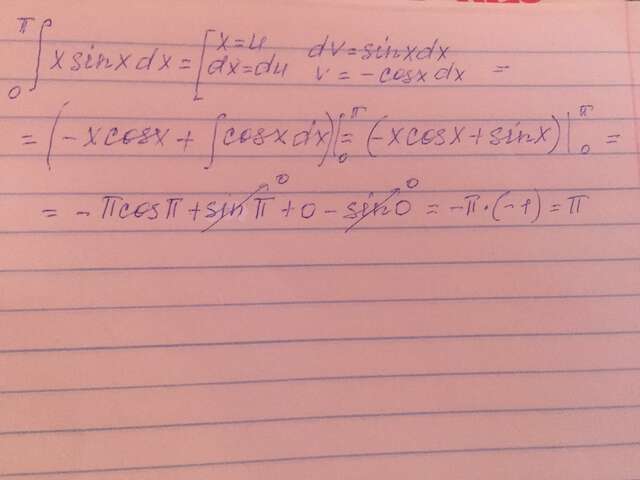 ∫₀^π x sinx dx = [x=u dv=sinxdx =
dx=du v=-cosx dx
= (-x cosx + ∫cosx dx)|₀^π = (-x cosx + sinx)|₀^π =
= -π cosπ + sinπ⁰ + 0 - sin0⁰ = -π·(-1) = π